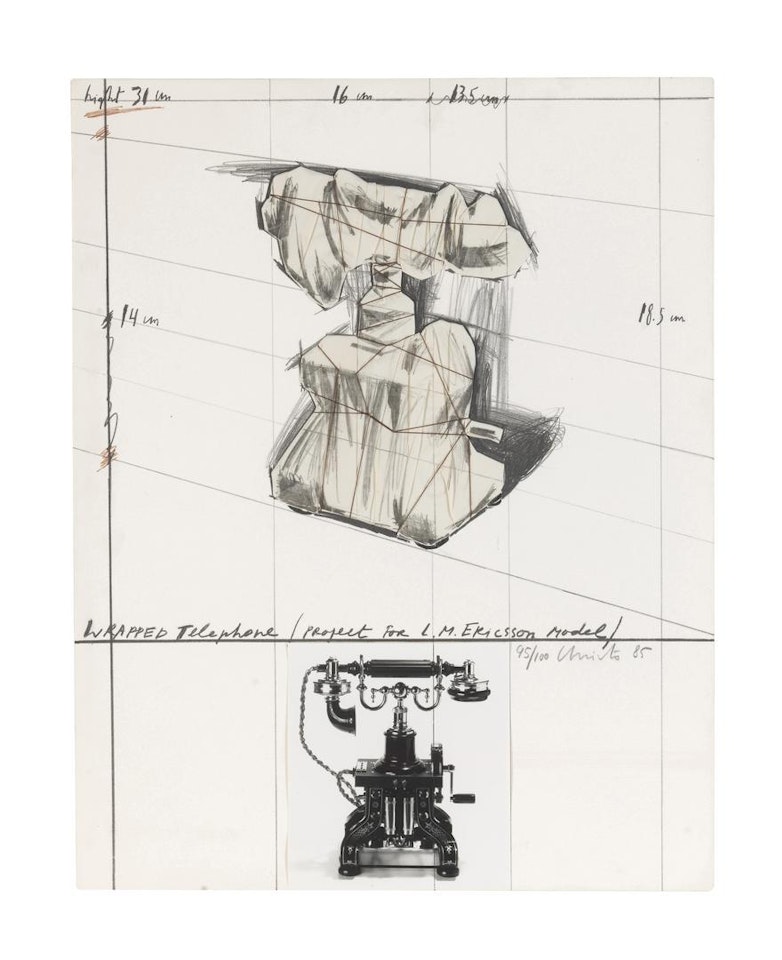 hight 31 cm 16 cm 13.5 cm
14 cm 18.5 cm
WRAPPED Telephone (PROJECT FOR L.M. ERICSSON MODEL)
95/100 Christo 85